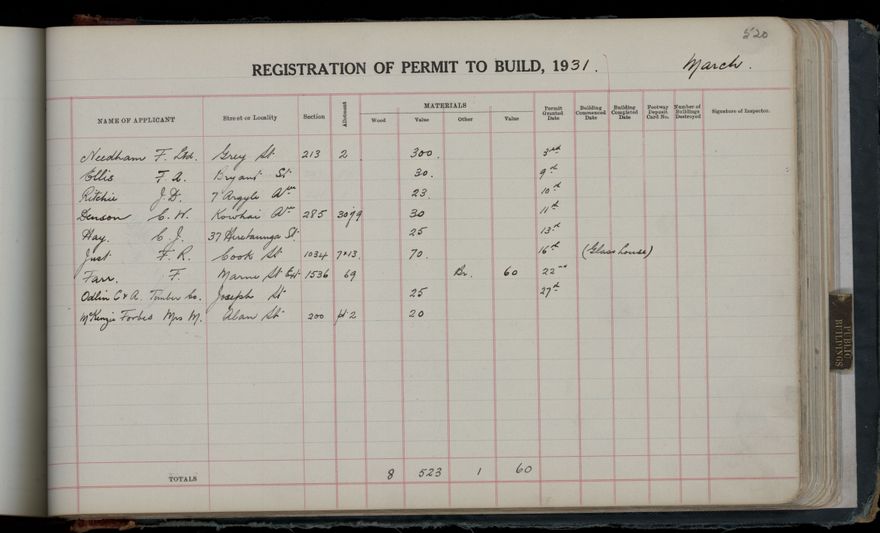 520
REGISTRATION OF PERMIT TO BUILD, 1931. March.
NAME OF APPLICANT Street or Locality Section Allotment MATERIALS Wood Value Other Value Permit Granted Date Building Commenced Date Building Completed Date Footway Deposit Card No. Number of Buildings Destroyed Signature of Inspector.
Needham F. Ltd. Grey St 213 2 300. 3rd
Ellis F. A. Bryant St 30. 9th
Ritchie J. D. 7 Argyle Ave 23. 10th
Denson C. H. Kowhai Ave 285 30 30 11th
Hay. C. J. 37 Heretaunga St. 25 13th
Just F. R. Cook St 1034 7+13. 70. 16th (Glass house)
Farr. F. Marne St Ext 1536 69 Br. 60 22nd
Odlin C & A. Timber Co. Joseph St 25 27th
McKenzie Forbes Mrs M. Alan St 200 pt 2 20
TOTALS 8 523 1 60
PUBLIC BUILDINGS